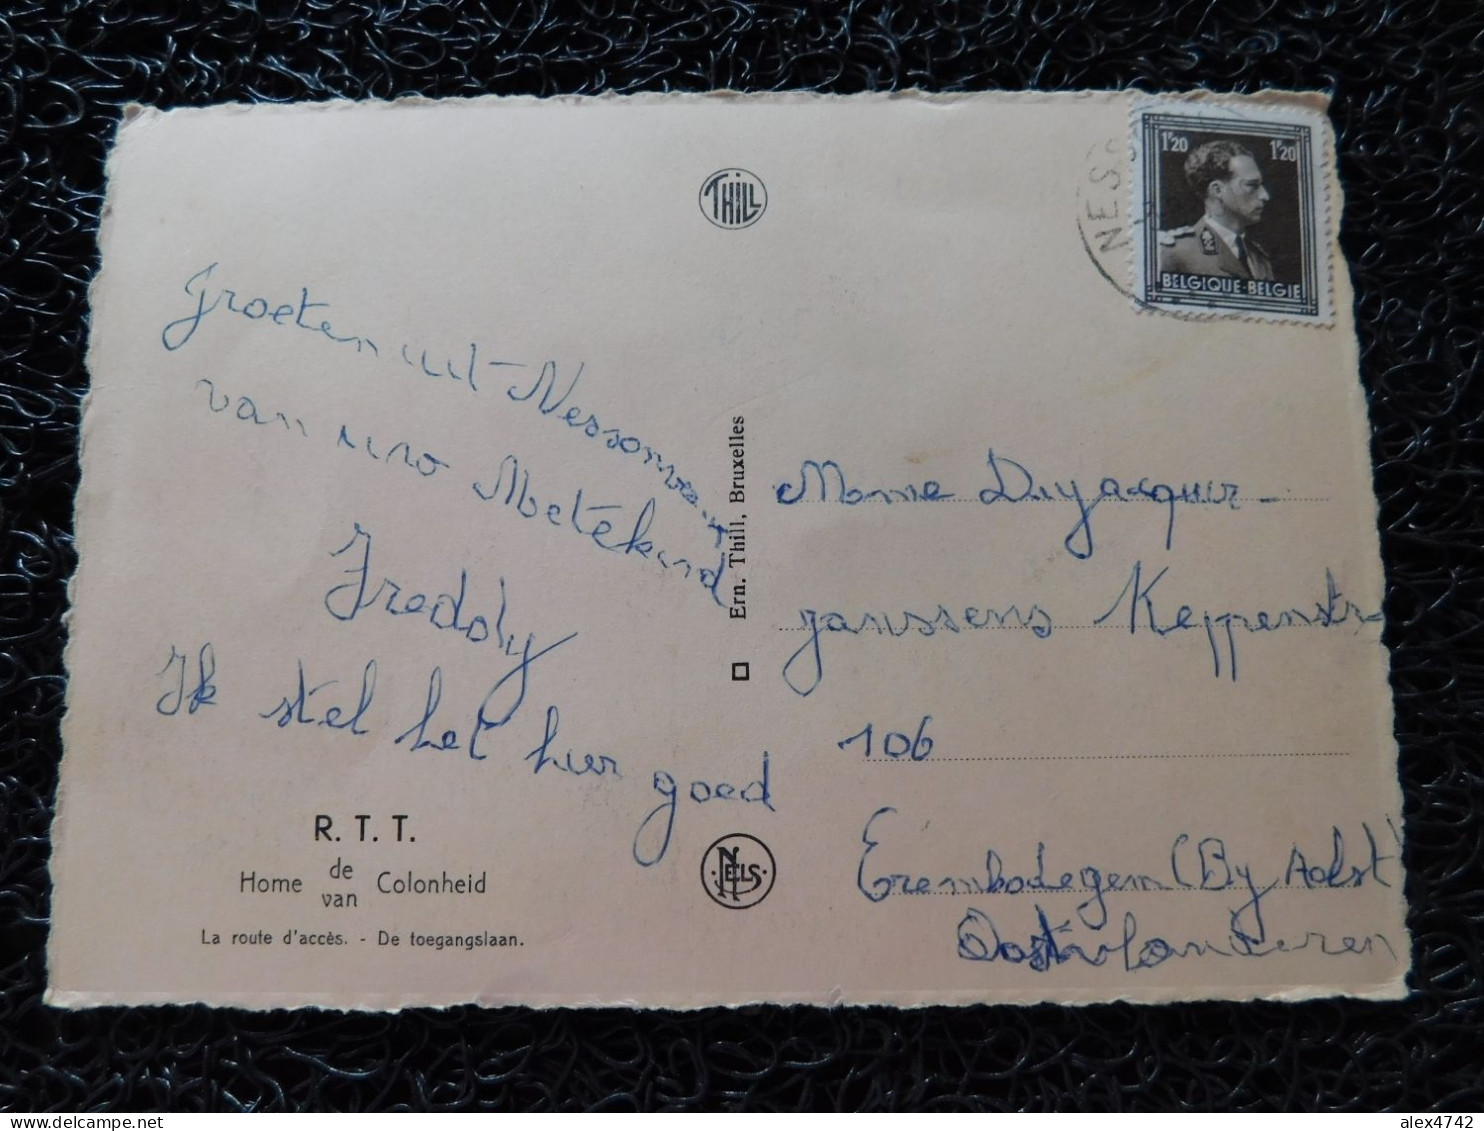 THILL
NESS
1F20 1F20
BELGIQUE-BELGIE
Groeten uit Nessonvaux
van uw Metekind
Freddy
Ik stel het hier goed
Ern. Thill, Bruxelles
Mme Duyacquir
janssens Keppenstr
106
Erembodegem (By Aalst)
Oostvlaanderen
R. T. T.
Home de van Colonheid
La route d'accès. - De toegangslaan.
NELS
alex4742